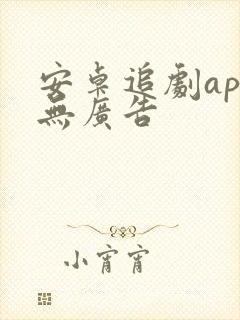 安桌追劇ap
無廣告
小宵宵